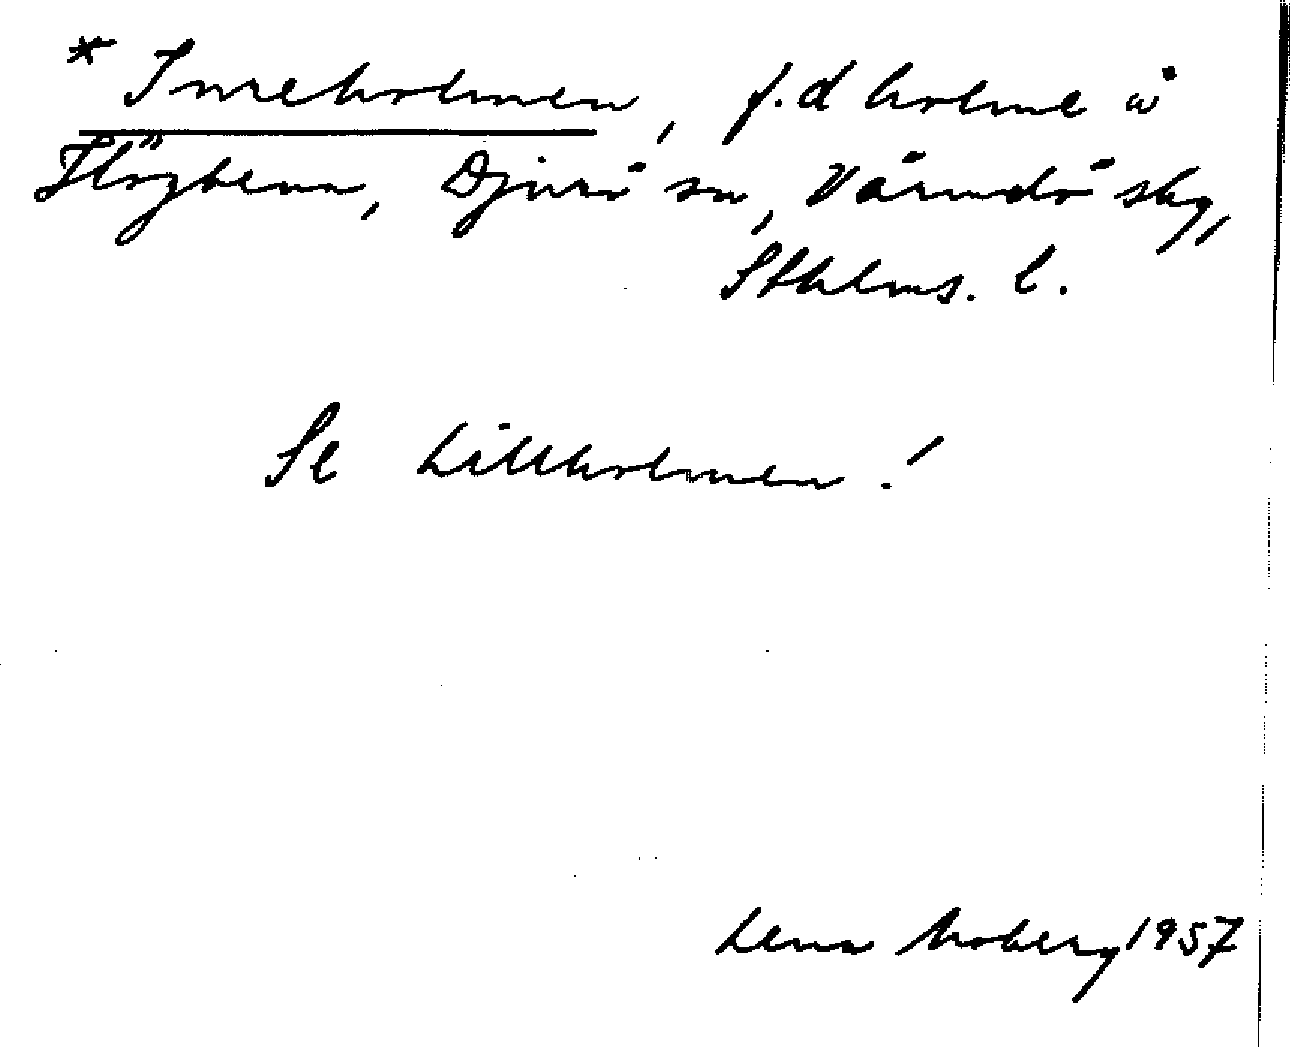 * Inreholmen, f.d holme å
Högbenn, Djurö sn, Värmdö skg,
Sthlms. l.
Se Lillholmen!
Lena Moberg 1957